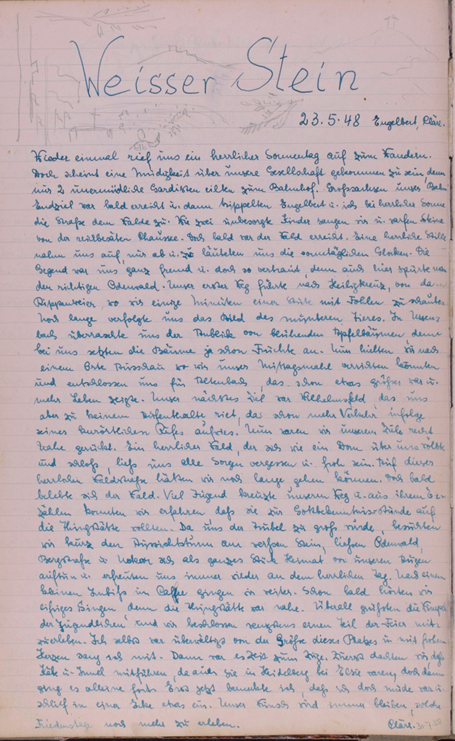 Weisser Stein
23.5.48 Engelbert, Clär.
Wieder einmal rief uns ein herrlicher Sonnentag auf zum Wandern.
Doch scheint eine Müdigkeit über unsere Gesellschaft gekommen zu sein denn
nur 2 unermüdliche Gardisten eilten zum Bahnhof. Grosssachsen unser Bahn
Endziel war bald erreicht u. dann trippelten Engelbert u. ich bei herrlicher Sonne
die Straße dem Walde zu. Wie zwei unbesorgte Kinder sangen wir u. warfen Steine
von der Chaussee. Doch bald war der Wald erreicht. Eine herrliche Stille
nahm uns auf, nur ab u. zu läuteten uns die sonntäglichen Glocken. Die
Gegend war uns ganz fremd u. doch so vertraut, denn auch hier spürte man
den richtigen Odenwald. Unser erster Weg führte nach Heiligkreuz, von da
Rippenweier wo wir einige Minuten einer Stute mit Fohlen zu schauten
Noch lange verfolgte uns das Bild des munteren Tieres. In Ursen
bach überraschte uns der Anblick von blühenden Apfelbäumen denn
bei uns setzten die Bäume ja schon Früchte an. Nun hielten wir nach
einem Orte Ausschau wo wir unser Mittagsmahl verrichten konnten
und entschlossen uns für Altenbach, das schon etwas größer war u.
mehr Leben zeigte. Unser nächstes Ziel war Wilhelmsfeld das uns
aber zu keinem aufenthalte rief, da schon mehr infolge
seines Kurörtlichen Rufes auftrat. Nun waren wir unserem Ziele recht
nahe gerückt. Ein herrlicher Wald, der sich wie ein Dom über uns wölbte
und schloß, ließ uns alle Sorgen vergessen u. froh sein. Auf dieser
herrlichen Waldstraße hätten wir noch lange gehen können. Doch bald
belebte sich der Wald. Viel Jugend kreuzte unseren Weg u. aus ihrem Er-
zählen konnten wir erfahren daß sie zur Gottbekenntnisstunde auf
die Thingstätte wollen. Da uns der Trubel zu groß würde, besuchten
wir kurz den Aussichtsturm am weißen Stein, ließen Odenwald,
Bergstraße u. Neckar sich als ganzes Stück Heimat vor unseren Augen
auftun u. erfreuten uns immer wieder an dem herrlichen Tag. Nach einem
kleinen Imbiß im Kaffee gingen wir weiter. Schon bald hörten wir
eifriges Singen denn die Thingstätte war nahe. Überall grüßten die
der Jugendlichen und wir beschlossen wenigstens einen Teil der Feier mit-
zuerleben. Ich selbst war überwältigt von der Größe dieses Platzes in mit frohem
Herzen sang ich mit. Dann war es Zeit zum Zuge.
die auch in Heidelberg bei waren, doch dann
ging es allerorts Erst jetzt bemerkte ich, daß ich doch müde war u.
schlief in einer Ecke etwas ein. Unser Wunsch wird immer bleiben, solche
noch mehr zu erleben. Clär.